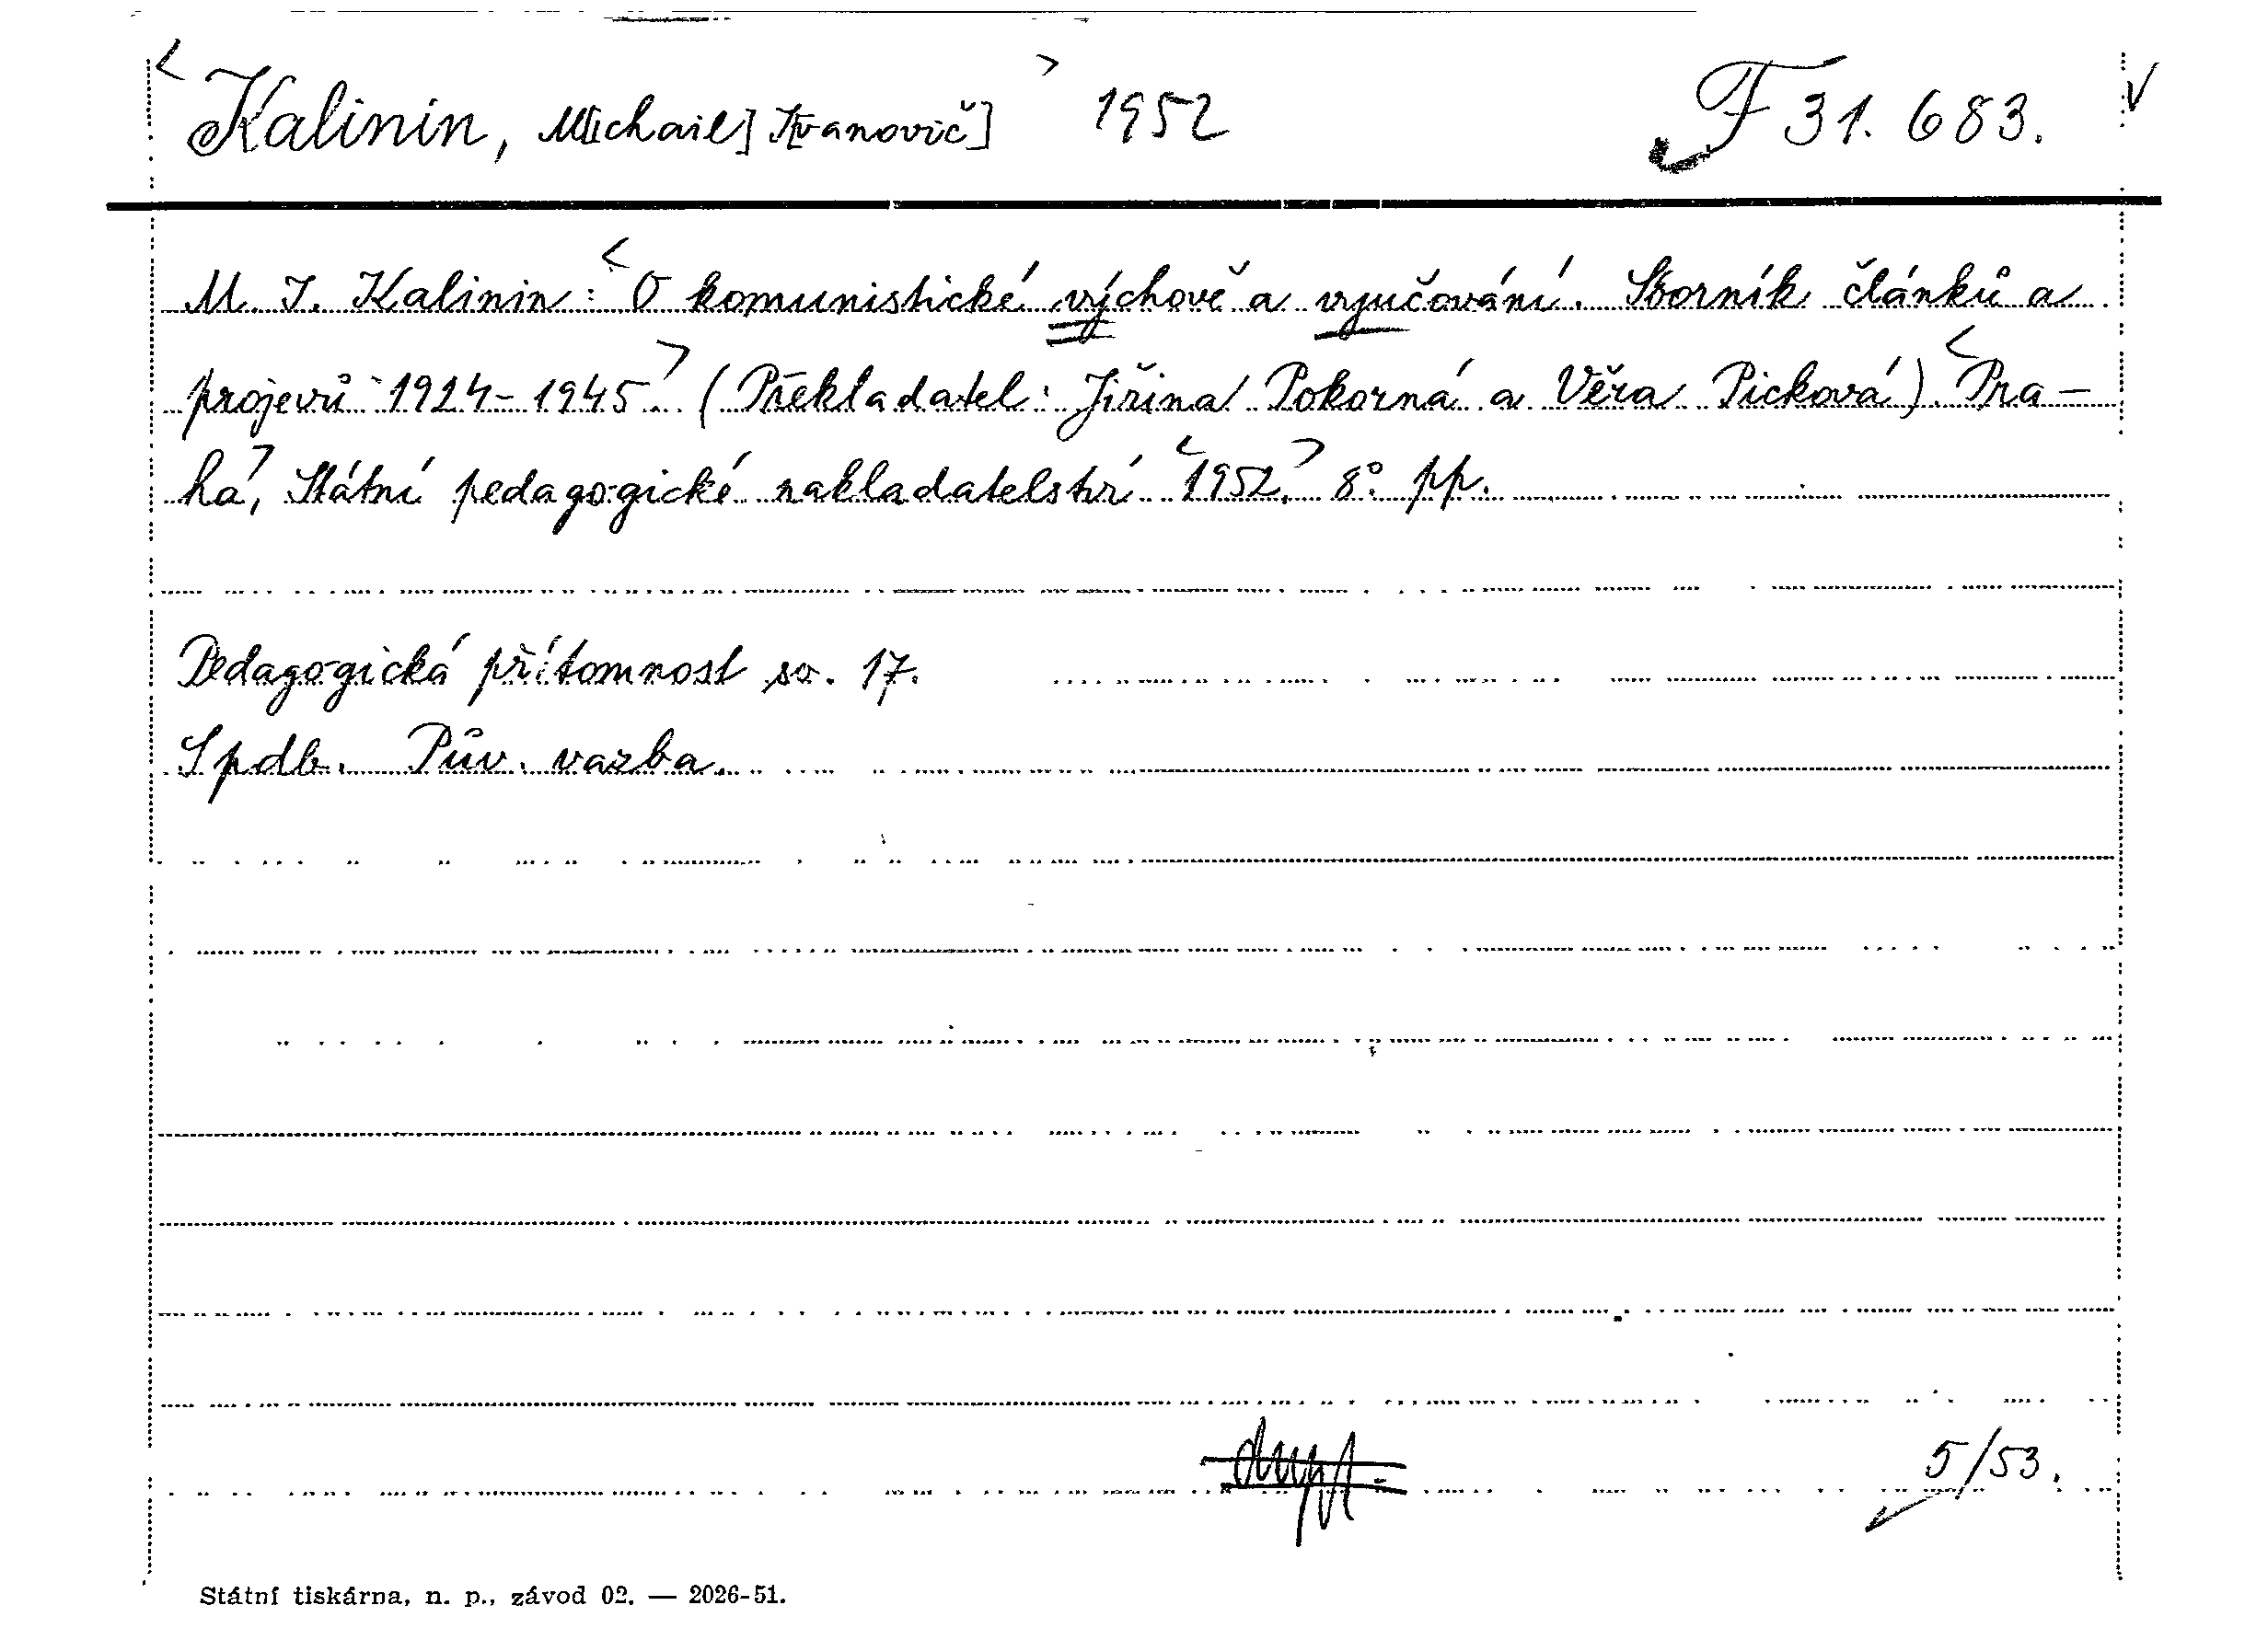 <Kalinin, M[ichail] I[vanovič]> 1952 F 31.683. v
M. I. Kalinin: <O komunistické výchově a vyučování. Sborník článků a
projevů 1924-1945.> (Překladatel: Jiřina Pokorná a Věra Picková). <Pra-
ha>, Státní pedagogické nakladatelství <1952.> 8° pp.
Pedagogická přítomnost sv. 17.
Spdb. Pův. vazba.
5/53.
Státní tiskárna, n. p., závod 02. — 2026-51.